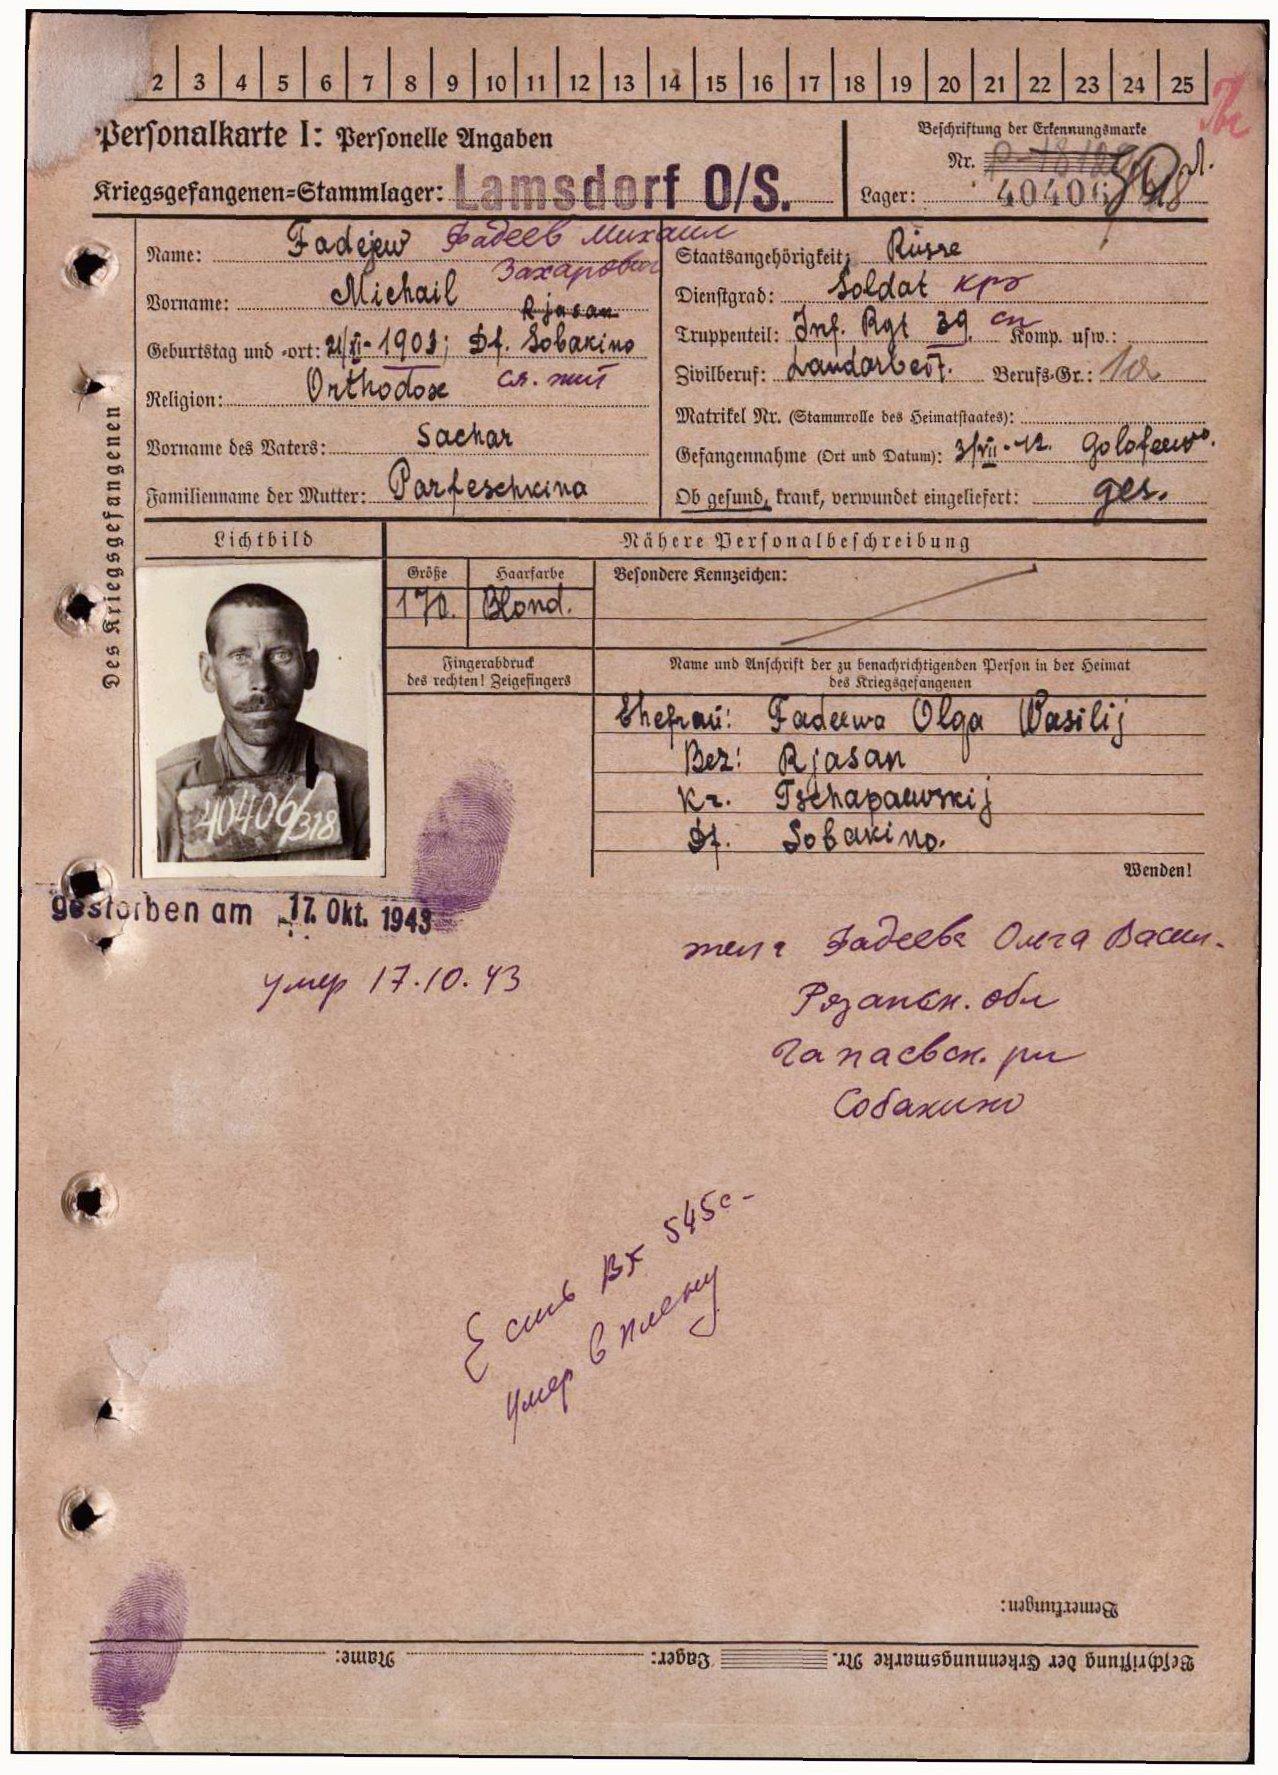 2 3 4 5 6 7 8 9 10 11 12 13 14 15 16 17 18 19 20 21 22 23 24 25
Personalkarte I: Personelle Angaben
Kriegsgefangenen=Stammlager: Lamsdorf O/S.
Beschriftung der Erkennungsmarke
Nr.
Lager: 40406
Des Kriegsgefangenen
Name: Fadejew Фадеев Михаил
Захарович
Vorname: Michail
Rjasan
Geburtstag und -ort: 21/XI - 1903; Df. Sobakino
Religion: Orthodox
Vorname des Vaters: Sachar
Familienname der Mutter: Parfeschkina
Staatsangehörigkeit: Russe
Dienstgrad: Soldat крз
Truppenteil: Inf. Rgt 39. сп Komp. usw.:
Zivilberuf: Landarbeit. Berufs-Gr.:
Matrikel Nr. (Stammrolle des Heimatstaates):
Gefangennahme (Ort und Datum): 3/VII - 42.
Ob gesund, krank, verwundet eingeliefert: ges.
Lichtbild
Nähere Personalbeschreibung
Größe Haarfarbe Besondere Kennzeichen:
170. Blond.
Fingerabdruck
des rechten! Zeigefingers
Name und Anschrift der zu benachrichtigenden Person in der Heimat
des Kriegsgefangenen
Ehefrau: Fadeewa Olga Wasilij
Bez: Rjasan
Kr. Tschapaewskij
Df. Sobakino.
Wenden!
40406/318
gestorben am 17. Okt. 1943
умер 17.10.43
жена Фадеева Ольга Васил.
Рязанск. обл
Чапаевск. рн
Собакино
Есть Вх 545с-
умер в плену
Bemerkungen:
Beschriftung der Erkennungsmarke Nr. Lager: Name: